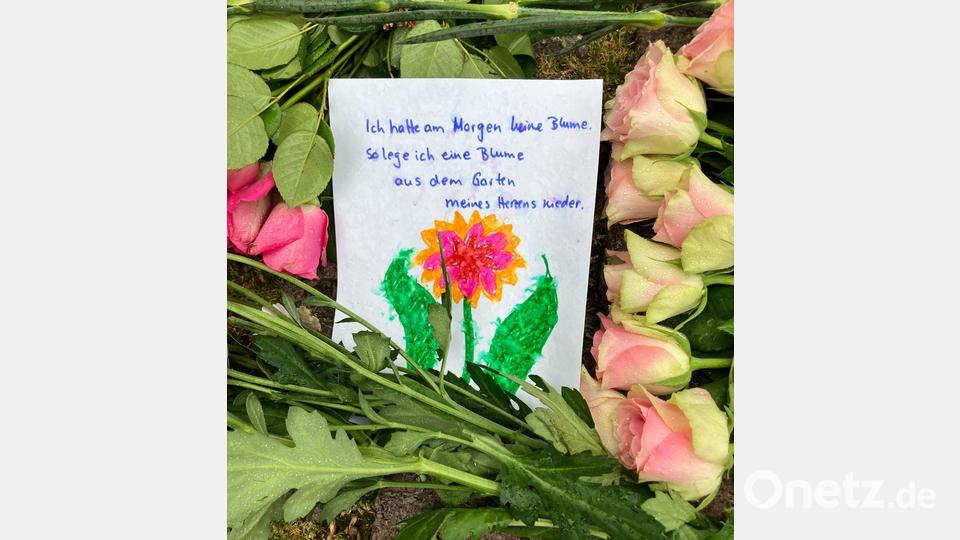 Ich hatte am Morgen keine Blume.
So lege ich eine Blume
aus dem Garten
meines Herzens nieder.
Onetz.de